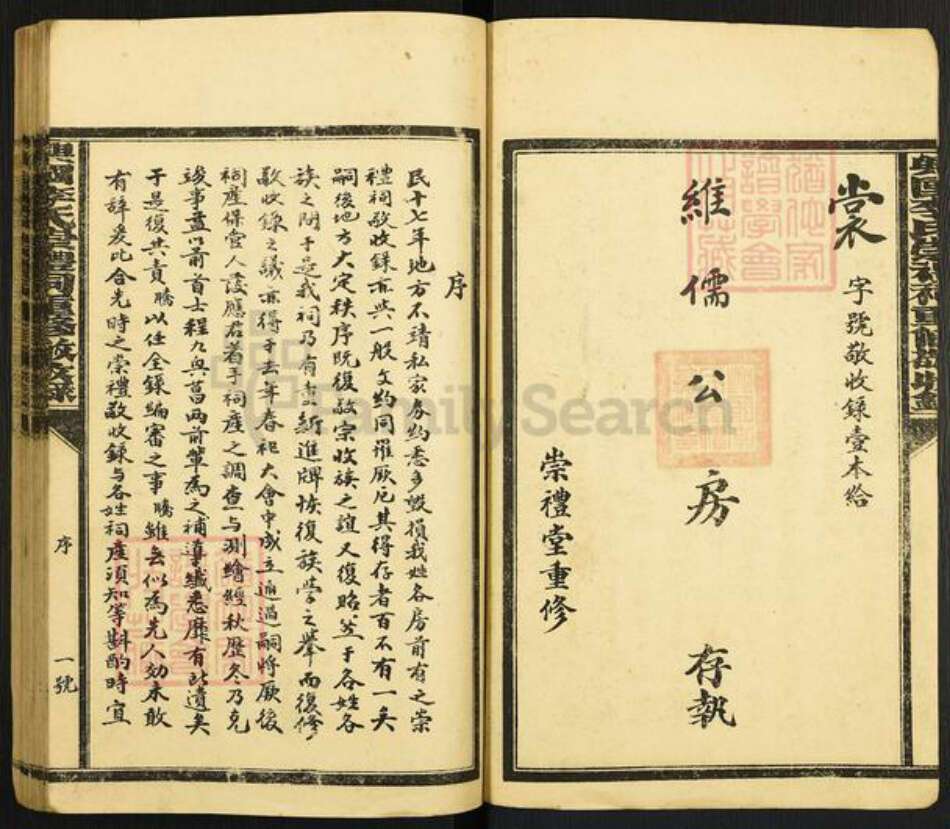 裳字號敬收錄壹本給
維儒公房存執
崇禮堂重修
序
民十七年地方不靖私家券約悉多毀損我姓各房前有之崇
禮祠敬收錄亦與一般文約同罹厥厄其得存者百不有一矣
嗣後地方大定秩序既復敬宗收族之誼又復昭竺于各姓各
族之間于是我祠乃有重新進牌恢復族學之舉而復修
敬收錄之議亦得于去年春祀大會中成立通過嗣將厥後
祠產保管人後應君著手祠產之調查与測繪經秋歷冬乃克
竣事並以前首士程九與菖両前輩為之補導纖悉靡有所遺矣
于是復共責騰以任全錄編審之事騰雖無似為先人効未敢
有辭爰比合先時之崇禮敬收錄与各姓祠產須知等斟酌時宜
序
一號
FamilySearch